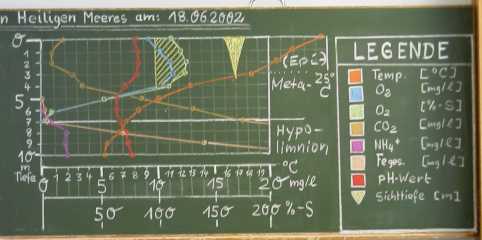 n Heiligen Meeres am: 18.06.2002
0
1
2
3
4
5
6
7
8
9
10
(Epi)
Meta- 25° C
Hypo-
limnion
LEGENDE
Temp. [°C]
O₂ [mg/l]
O₂ [%-S]
CO₂ [mg/l]
NH₄⁺ [mg/l]
Feges. [mg/l]
pH-Wert
Sichttiefe [m]
m Tiefe
1 2 3 4 6 7 8 9 11 12 13 14 16 17 18 19 °C
0 5 10 15 20 mg/l
50 100 150 200 %-S